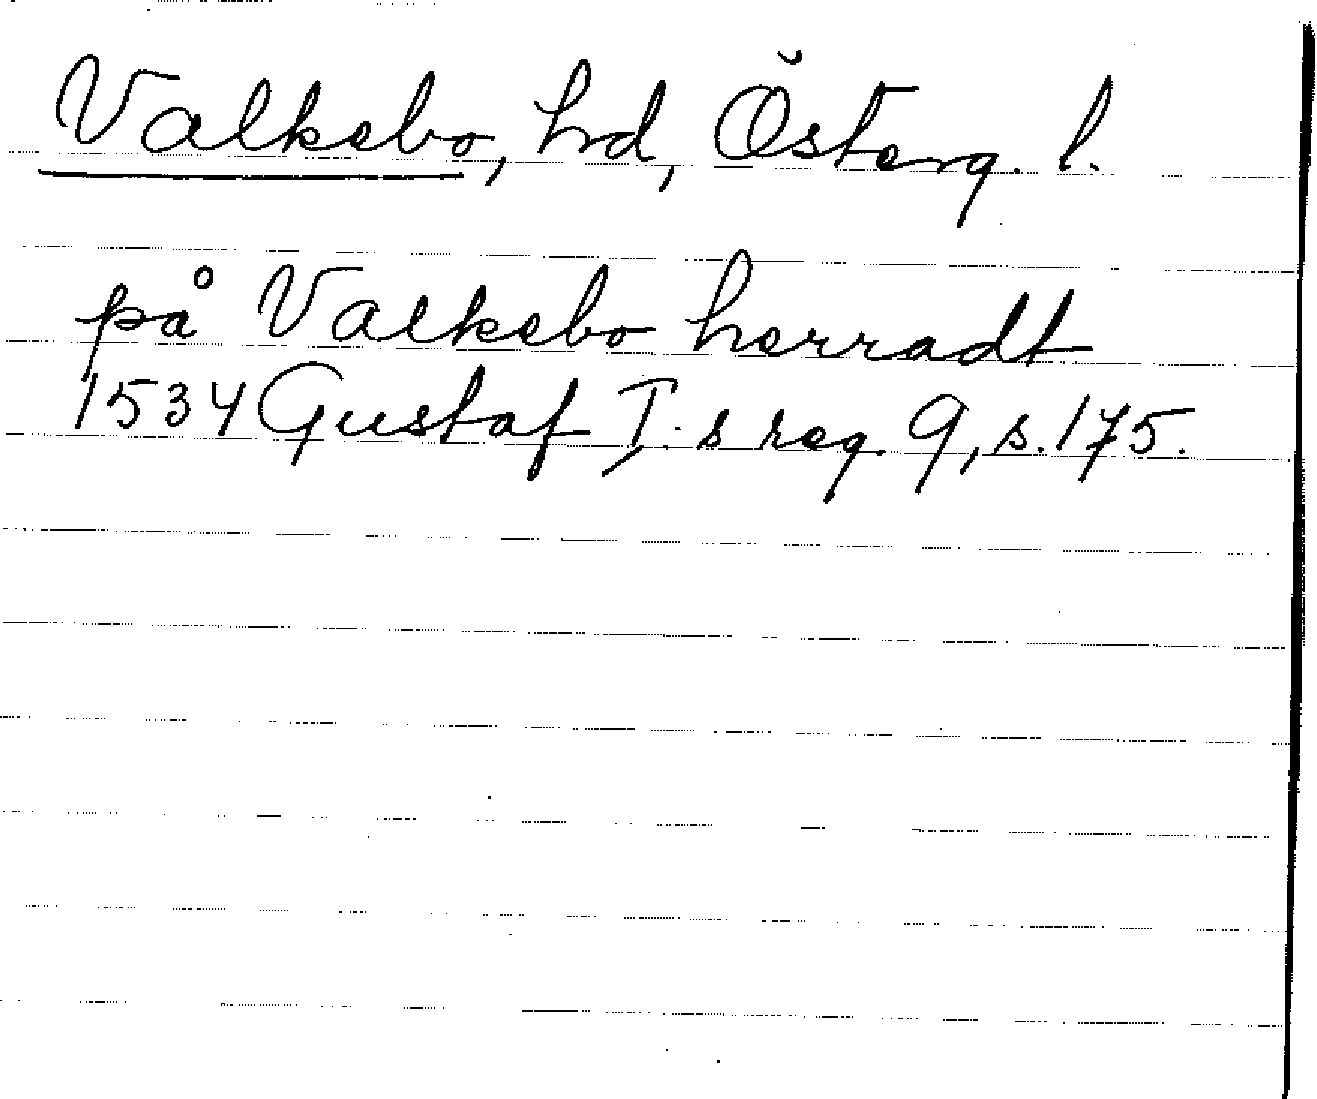 Valkebo, hd, Österg. l.
på Valkebo herradt
1534 Gustaf I:s reg. 9, s. 175.